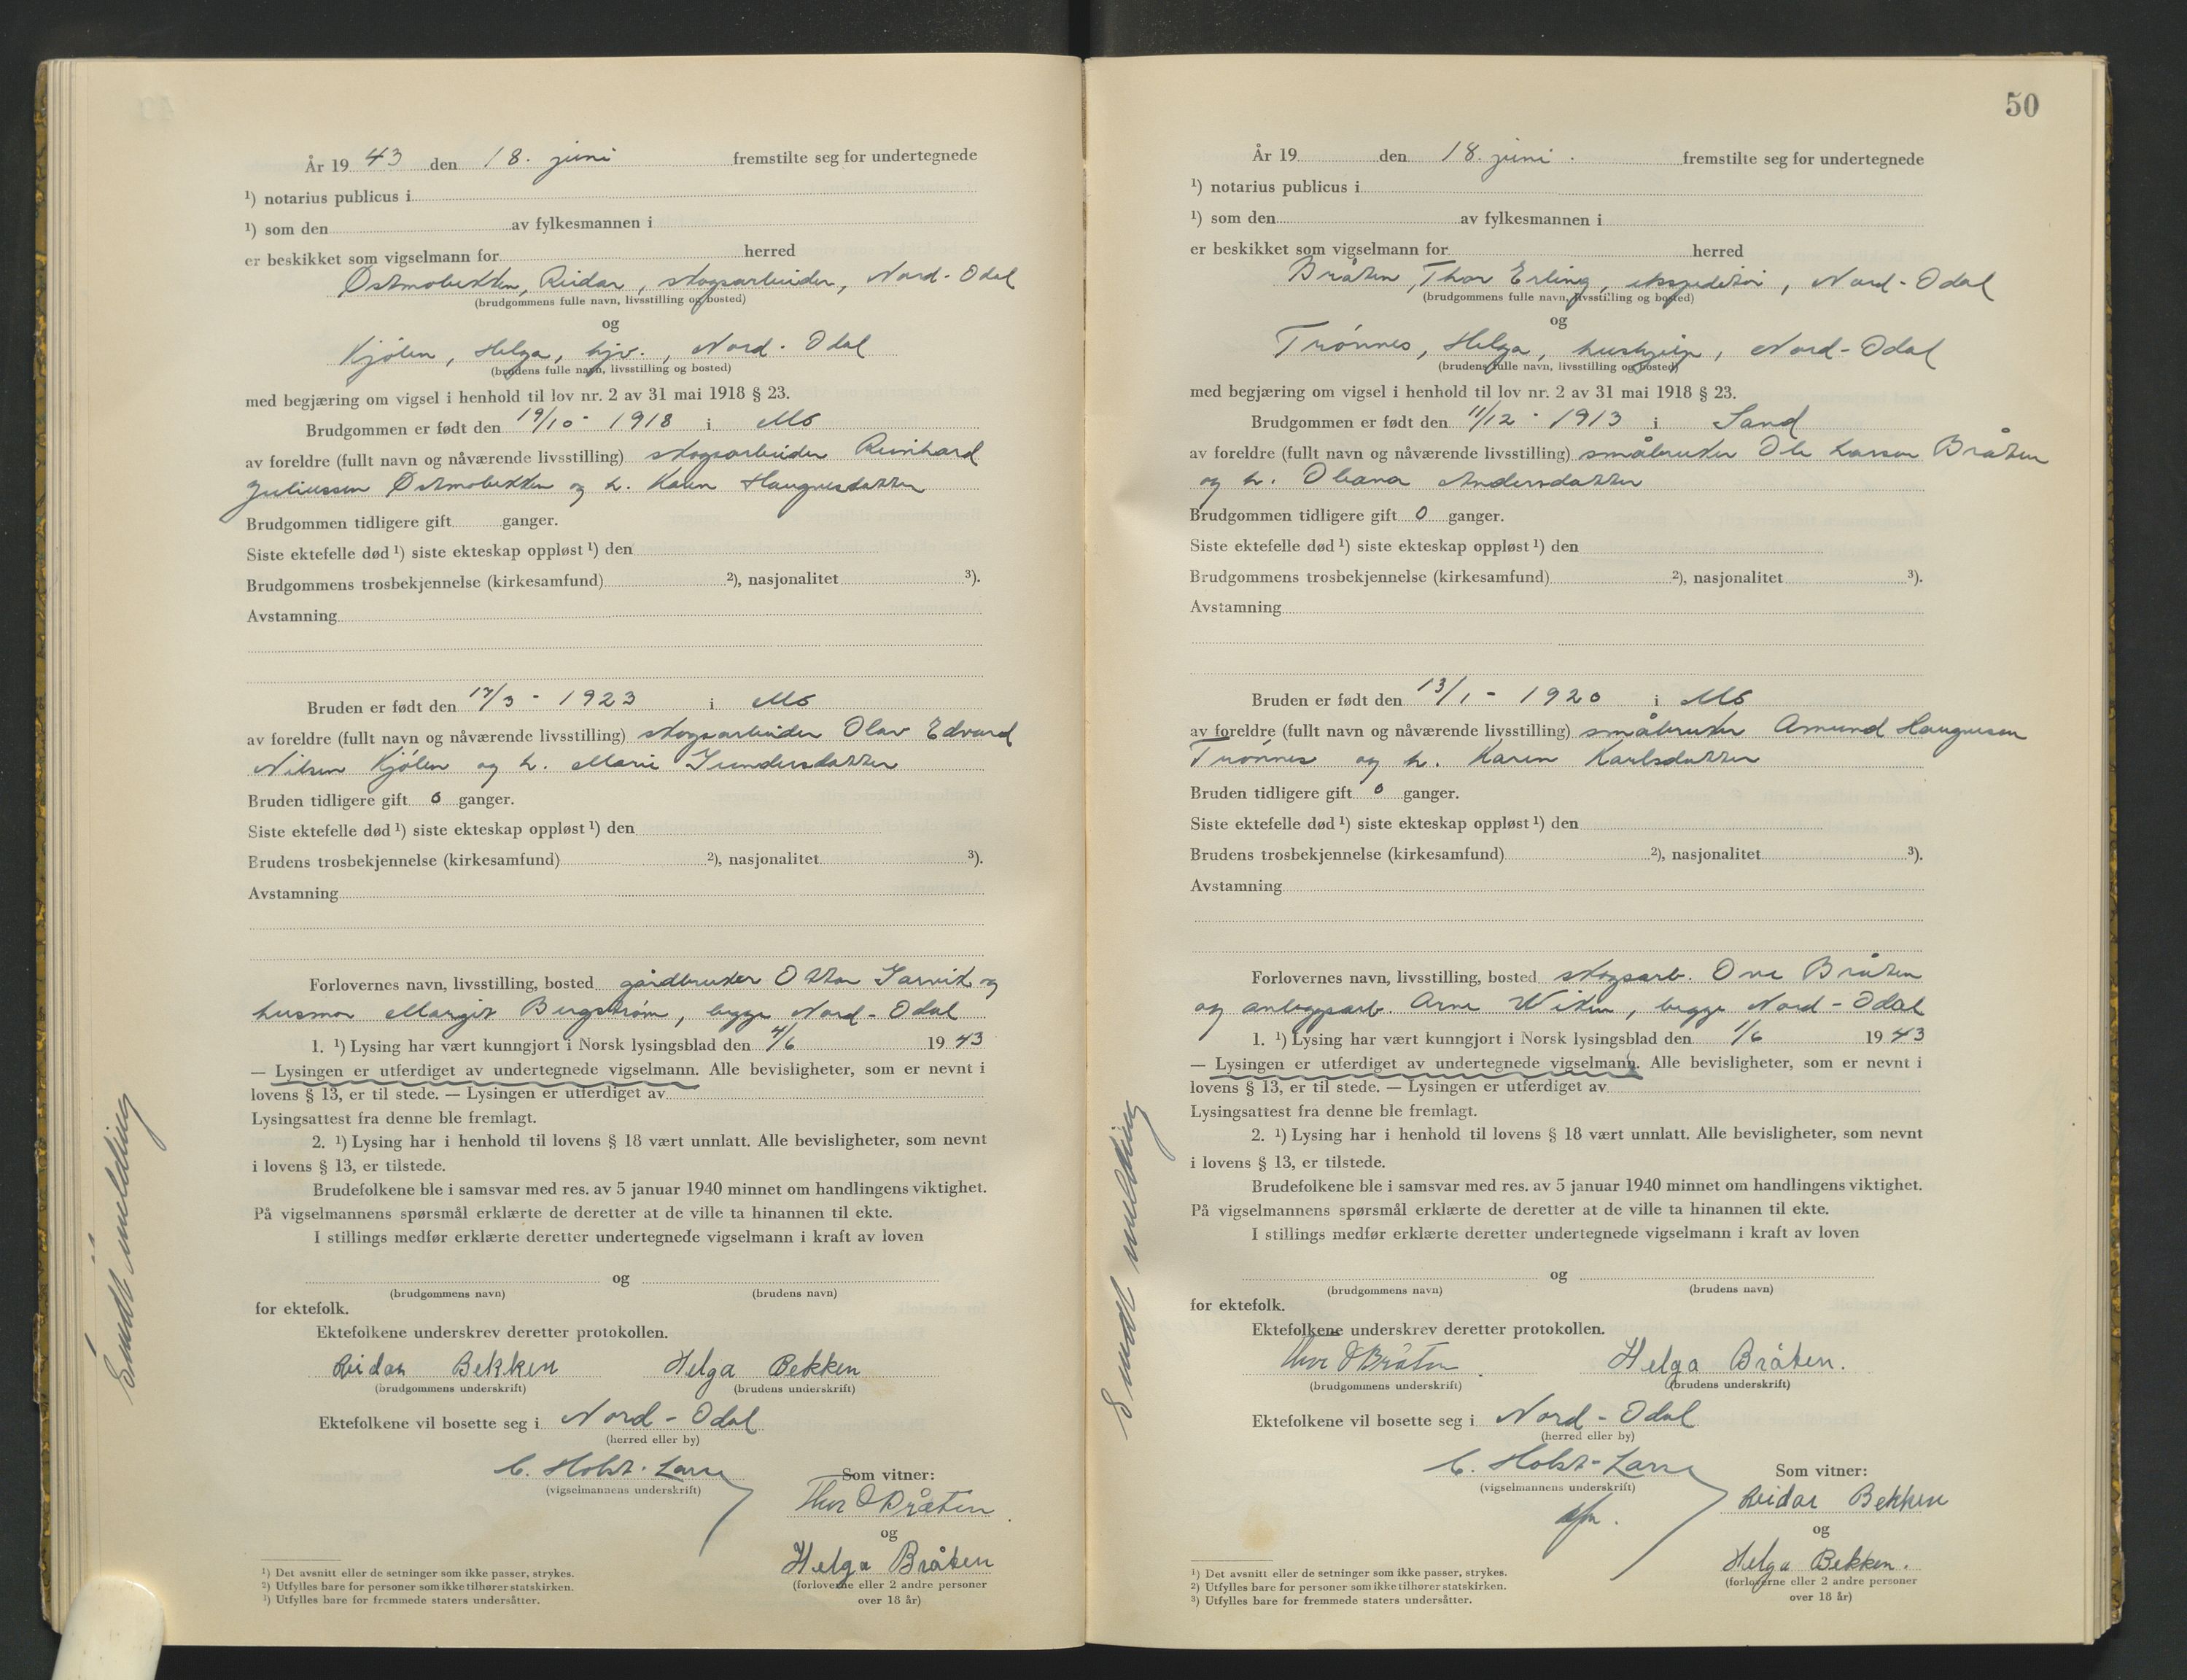 År 19 43 den 18. juni fremstilte seg for undertegnede
¹) notarius publicus i
¹) som den av fylkesmannen i
er beskikket som vigselmann for herred
Østmobekken, Reidar, skogsarbeider, Nord-Odal
(brudgommens fulle navn, livsstilling og bosted)
og
Kjølen, Helga, hjv., Nord-Odal
(brudens fulle navn, livsstilling og bosted)
med begjæring om vigsel i henhold til lov nr. 2 av 31 mai 1918 § 23.
Brudgommen er født den 19/10 - 1918 i Mo
av foreldre (fullt navn og nåværende livsstilling) skogsarbeider Reinhard
Juliussen Østmobekken og h. Karen Haugnesdatter
Brudgommen tidligere gift ganger.
Siste ektefelle død ¹) siste ekteskap oppløst ¹) den
Brudgommens trosbekjennelse (kirkesamfund) ²), nasjonalitet ³).
Avstamning
Bruden er født den 17/3 - 1923 i Mo
av foreldre (fullt navn og nåværende livsstilling) skogsarbeider Olav Edvard
Nilsen Kjølen og h. Marie Gundersdatter
Bruden tidligere gift 0 ganger.
Siste ektefelle død ¹) siste ekteskap oppløst ¹) den
Brudens trosbekjennelse (kirkesamfund) ²), nasjonalitet ³).
Avstamning
Forlovernes navn, livsstilling, bosted gårdbruker Ottar Sarvik og
husmor Margit Bergstrøm, begge Nord-Odal
1. ¹) Lysing har vært kunngjort i Norsk lysingsblad den 4/6 19 43
— Lysingen er utferdiget av undertegnede vigselmann. Alle bevisligheter, som er nevnt i
lovens § 13, er til stede. — Lysingen er utferdiget av
Lysingsattest fra denne ble fremlagt.
2. ¹) Lysing har i henhold til lovens § 18 vært unnlatt. Alle bevisligheter, som nevnt
i lovens § 13, er tilstede.
Brudefolkene ble i samsvar med res. av 5 januar 1940 minnet om handlingens viktighet.
På vigselmannens spørsmål erklærte de deretter at de ville ta hinannen til ekte.
I stillings medfør erklærte deretter undertegnede vigselmann i kraft av loven
og
(brudgommens navn) (brudens navn)
for ektefolk.
Ektefolkene underskrev deretter protokollen.
Reidar Bekken Helga Bekken
(brudgommens underskrift) (brudens underskrift)
Ektefolkene vil bosette seg i Nord-Odal
(herred eller by)
C. Holst-Larse
(vigselmannens underskrift)
Som vitner:
Thor E Bråten
og
Helga Bråten
(forloverne eller 2 andre personer
over 18 år)
¹) Det avsnitt eller de setninger som ikke passer, strykes.
²) Utfylles bare for personer som ikke tilhører statskirken.
³) Utfylles bare for fremmede staters undersåtter.
Sendt melding
50
År 19 den 18. juni. fremstilte seg for undertegnede
¹) notarius publicus i
¹) som den av fylkesmannen i
er beskikket som vigselmann for herred
Bråten, Thor Erling, ekspeditør, Nord-Odal
(brudgommens fulle navn, livsstilling og bosted)
og
Trønnes, Helga, hushjelp, Nord-Odal
(brudens fulle navn, livsstilling og bosted)
med begjæring om vigsel i henhold til lov nr. 2 av 31 mai 1918 § 23.
Brudgommen er født den 11/12 - 1913 i Sand
av foreldre (fullt navn og nåværende livsstilling) småbruker Ole Larsen Bråten
og h. Oleana Andersdatter
Brudgommen tidligere gift 0 ganger.
Siste ektefelle død ¹) siste ekteskap oppløst ¹) den
Brudgommens trosbekjennelse (kirkesamfund) ²), nasjonalitet ³).
Avstamning
Bruden er født den 13/1 - 1920 i Mo
av foreldre (fullt navn og nåværende livsstilling) småbruker Amund Haugnesen
Trønnes og h. Karen Karlsdatter
Bruden tidligere gift 0 ganger.
Siste ektefelle død ¹) siste ekteskap oppløst ¹) den
Brudens trosbekjennelse (kirkesamfund) ²), nasjonalitet ³).
Avstamning
Forlovernes navn, livsstilling, bosted skogsarb. Ove Bråten
og anleggsarb. Arne Wiken, begge Nord-Odal
1. ¹) Lysing har vært kunngjort i Norsk lysingsblad den 1/6 19 43
— Lysingen er utferdiget av undertegnede vigselmann. Alle bevisligheter, som er nevnt i
lovens § 13, er til stede. — Lysingen er utferdiget av
Lysingsattest fra denne ble fremlagt.
2. ¹) Lysing har i henhold til lovens § 18 vært unnlatt. Alle bevisligheter, som nevnt
i lovens § 13, er tilstede.
Brudefolkene ble i samsvar med res. av 5 januar 1940 minnet om handlingens viktighet.
På vigselmannens spørsmål erklærte de deretter at de ville ta hinannen til ekte.
I stillings medfør erklærte deretter undertegnede vigselmann i kraft av loven
og
(brudgommens navn) (brudens navn)
for ektefolk.
Ektefolkene underskrev deretter protokollen.
Thor E Bråten Helga Bråten.
(brudgommens underskrift) (brudens underskrift)
Ektefolkene vil bosette seg i Nord-Odal
(herred eller by)
C. Holst-Larse
(vigselmannens underskrift)
Som vitner:
Reidar Bekken
og
Helga Bekken.
(forloverne eller 2 andre personer
over 18 år)
¹) Det avsnitt eller de setninger som ikke passer, strykes.
²) Utfylles bare for personer som ikke tilhører statskirken.
³) Utfylles bare for fremmede staters undersåtter.
Sendt melding